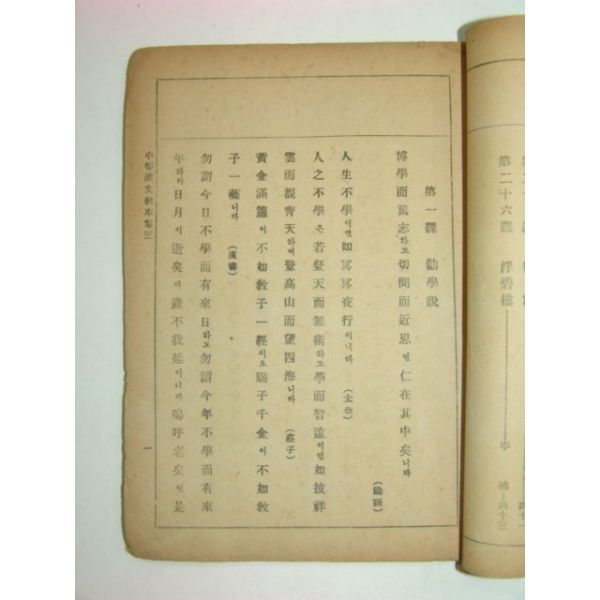 第二十六課 浮碧樓 李 穡 四十三
第一課 勸學說
博學而篤志하고切問而近思면仁在其中矣니라
(論語)
人生不學이면如冥冥夜行이니라 (太公)
人之不學은若登天而無術하고學而智遠이면如披祥
雲而覩靑天하며登高山而望四海니라 (莊子)
黃金滿籯이不如敎子一經이오賜子千金이不如敎
子一藝니라 (漢書)
勿謂今日不學而有來日하고勿謂今年不學而有來
年하라日月이逝矣라歲不我延이니라嗚呼老矣라是
中等漢文敎本卷三 一